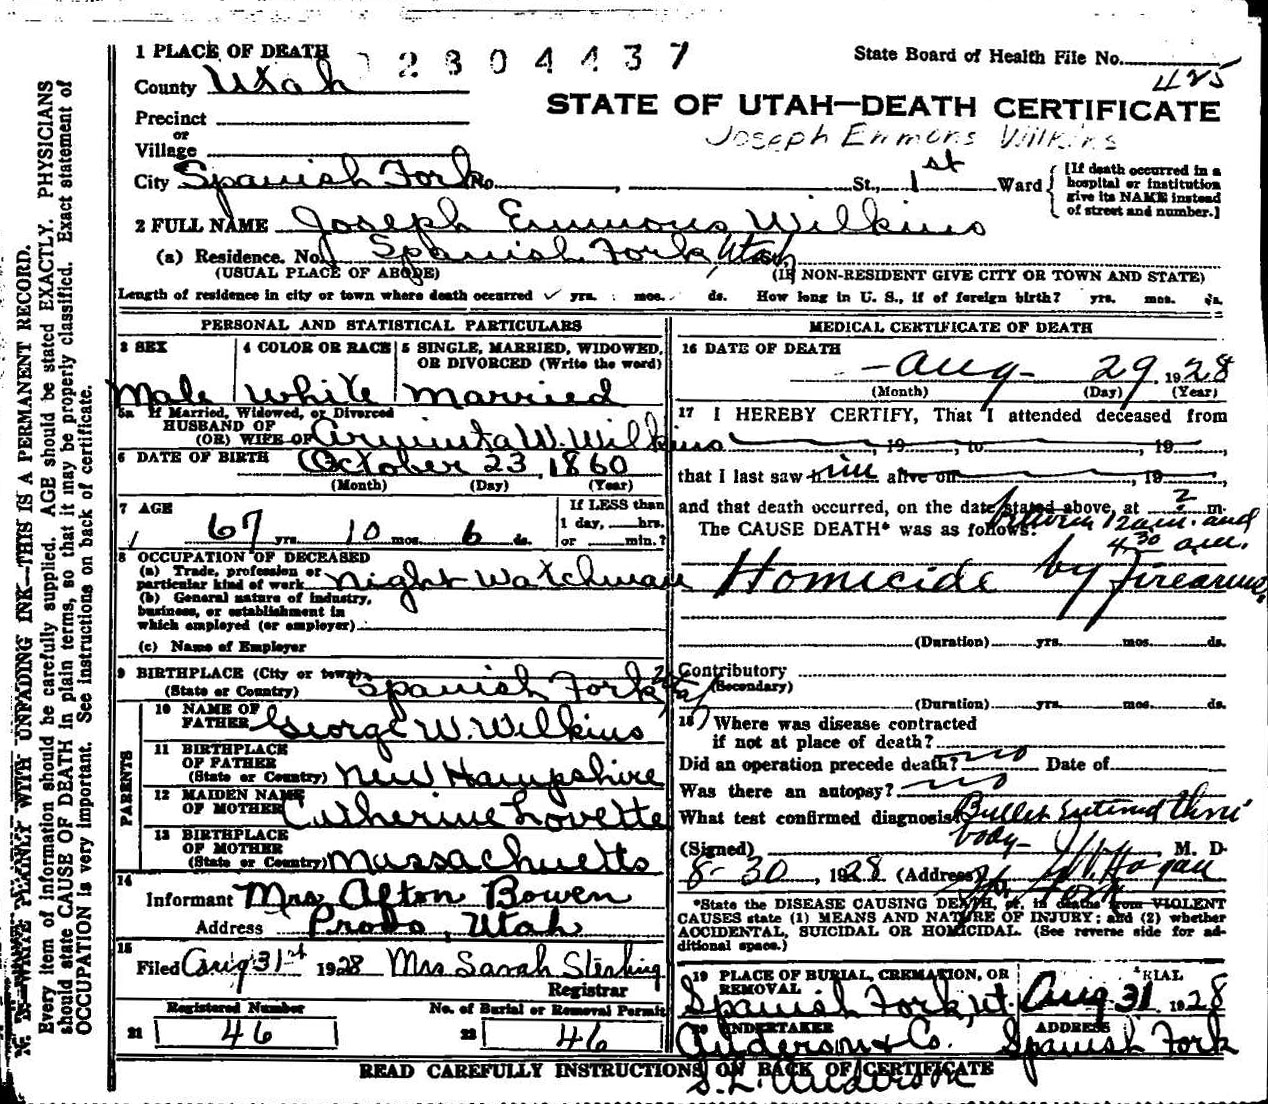 1 PLACE OF DEATH 2304437
State Board of Health File No. 425
County Utah
STATE OF UTAH—DEATH CERTIFICATE
Precinct
or
Joseph Emmons Wilkins
Village
City Spanish Fork No. , St., 1st Ward
[If death occurred in a hospital or institution give its NAME instead of street and number.]
2 FULL NAME Joseph Emmons Wilkins
(a) Residence. No. Spanish Fork, Utah,
(USUAL PLACE OF ABODE) (IF NON-RESIDENT GIVE CITY OR TOWN AND STATE)
Length of residence in city or town where death occurred yrs. mos. ds. How long in U. S., if of foreign birth? yrs. mos. ds.
PERSONAL AND STATISTICAL PARTICULARS
3 SEX
Male
4 COLOR OR RACE
White
5 SINGLE, MARRIED, WIDOWED,
OR DIVORCED (Write the word)
Married
5a If Married, Widowed, or Divorced
HUSBAND OF
(OR) WIFE OF Arminta W. Wilkins
6 DATE OF BIRTH October 23, 1860
(Month) (Day) (Year)
7 AGE
67 yrs. 10 mos. 6 ds.
If LESS than
1 day, hrs.
or min.?
8 OCCUPATION OF DECEASED
(a) Trade, profession or
particular kind of work Night Watchman
(b) General nature of industry,
business, or establishment in
which employed (or employer)
(c) Name of Employer
9 BIRTHPLACE (City or town)
(State or Country) Spanish Fork Utah
PARENTS
10 NAME OF
FATHER George W. Wilkins
11 BIRTHPLACE
OF FATHER
(State or Country) New Hampshire
12 MAIDEN NAME
OF MOTHER Catherine Lovette
13 BIRTHPLACE
OF MOTHER
(State or Country) Massachuetts
14
Informant Mrs Alton Bowen
Address Provo, Utah
15
Filed Aug 31st 1928 Mrs Sarah Sterling
Registrar
Registered Number
21 46
No. of Burial or Removal Permit
22 46
MEDICAL CERTIFICATE OF DEATH
16 DATE OF DEATH
Aug 29 1928
(Month) (Day) (Year)
17 I HEREBY CERTIFY, That I attended deceased from
, 19 , to , 19 ,
that I last saw him alive on , 19 ,
and that death occurred, on the date stated above, at ? m.
between 12 a.m. and
The CAUSE DEATH* was as follows:
4 30 a.m.
Homicide by firearms.
(Duration) yrs. mos. ds.
Contributory
(Secondary)
(Duration) yrs. mos. ds.
18 Where was disease contracted
if not at place of death?
Did an operation precede death? no Date of
Was there an autopsy? no
What test confirmed diagnosis? Bullet Entered thru
body
(Signed) Hogan, M. D.
8-30, 1928 (Address) Sp. Fork
*State the DISEASE CAUSING DEATH, or, in deaths from VIOLENT
CAUSES state (1) MEANS AND NATURE OF INJURY; and (2) whether
ACCIDENTAL, SUICIDAL OR HOMICIDAL. (See reverse side for ad-
ditional space.)
19 PLACE OF BURIAL, CREMATION, OR
REMOVAL
Spanish Fork, Ut. Aug. 31 1928
20 UNDERTAKER ADDRESS
Anderson & Co. Spanish Fork
S. L. Anderson
READ CAREFULLY INSTRUCTIONS ON BACK OF CERTIFICATE
N. B. WRITE PLAINLY WITH UNFADING INK—THIS IS A PERMANENT RECORD.
Every item of information should be carefully supplied. AGE should be stated EXACTLY. PHYSICIANS
should state CAUSE OF DEATH in plain terms, so that it may be properly classified. Exact statement of
OCCUPATION is very important. See instructions on back of certificate.